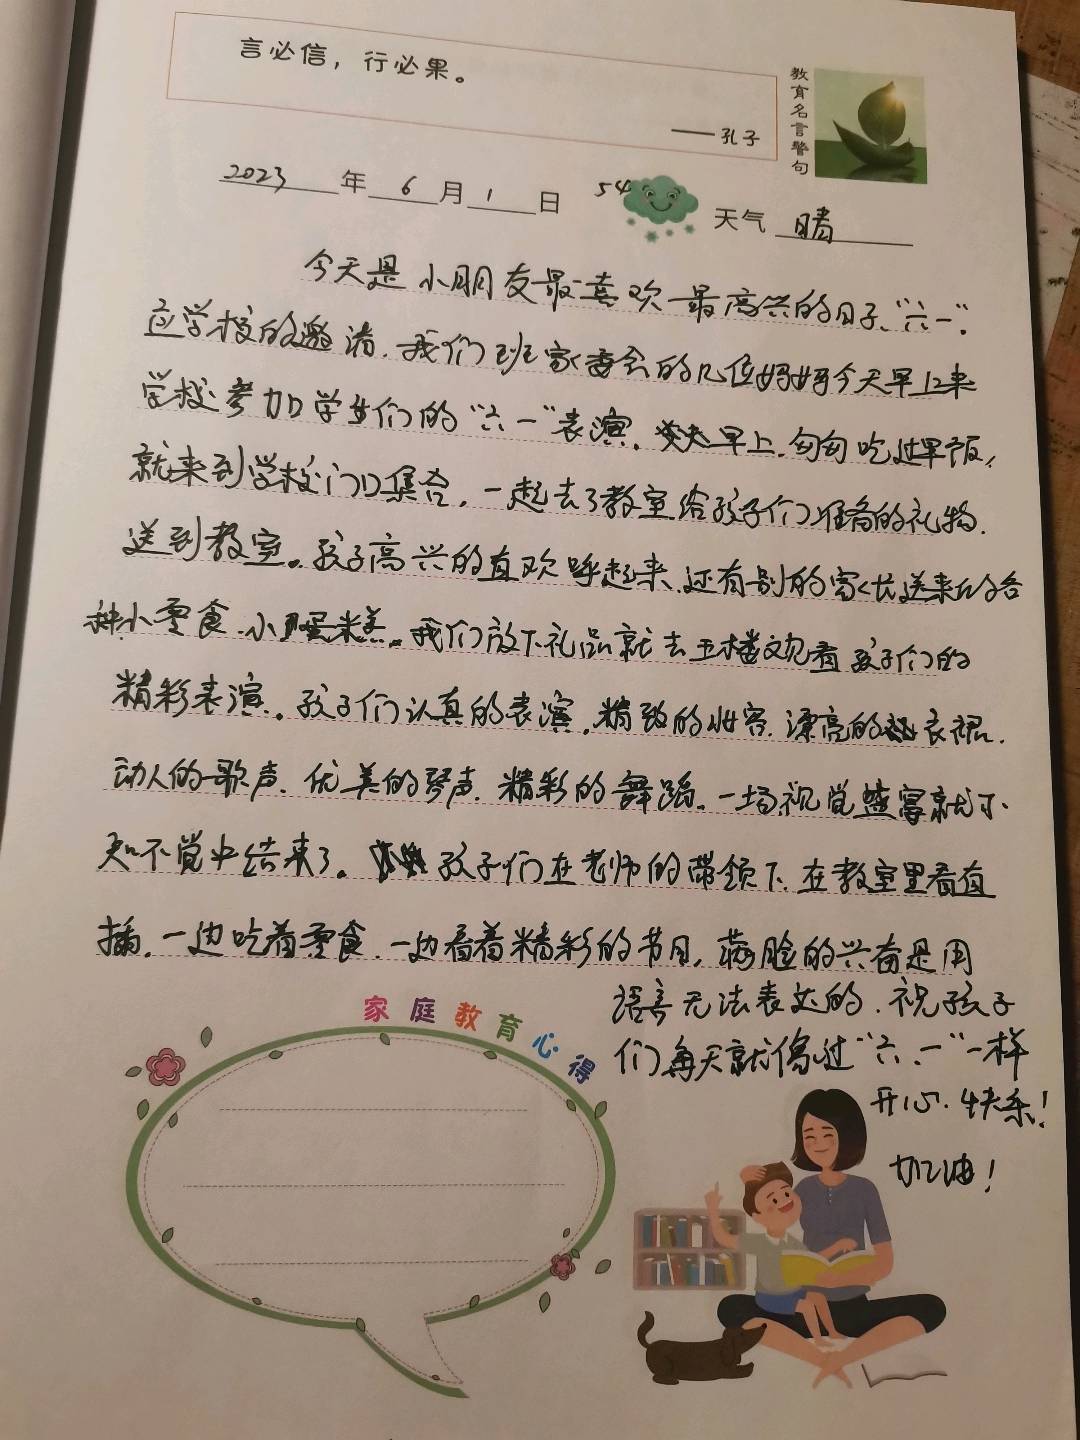 言必信，行必果。
——孔子
教育名言警句
2023年6月1日 54 天气 晴
今天是小朋友最喜欢最高兴的日子、“六一”.
应学校的邀请.我们班家委会的几位妈妈今天早上来
学校参加学生们的“六一”表演.早上.匆匆吃过早饭，
就来到学校门口集合，一起去了教室给孩子们准备的礼物.
送到教室。孩子高兴的直欢呼起来.还有别的家长送来的各
种小零食.小蛋糕。我们放下礼品就去五楼观看孩子们的
精彩表演。孩子们认真的表演,精致的妆容.漂亮的衣裙.
动人的歌声.优美的琴声.精彩的舞蹈.一场视觉盛宴就不
知不觉中结束了。孩子们在老师的带领下.在教室里看直
播.一边吃着零食.一边看着精彩的节目,满脸的兴奋是用
语言无法表达的.祝孩子
们每天就像过“六.一”一样
开心.快乐!
加油!
家庭教育心得